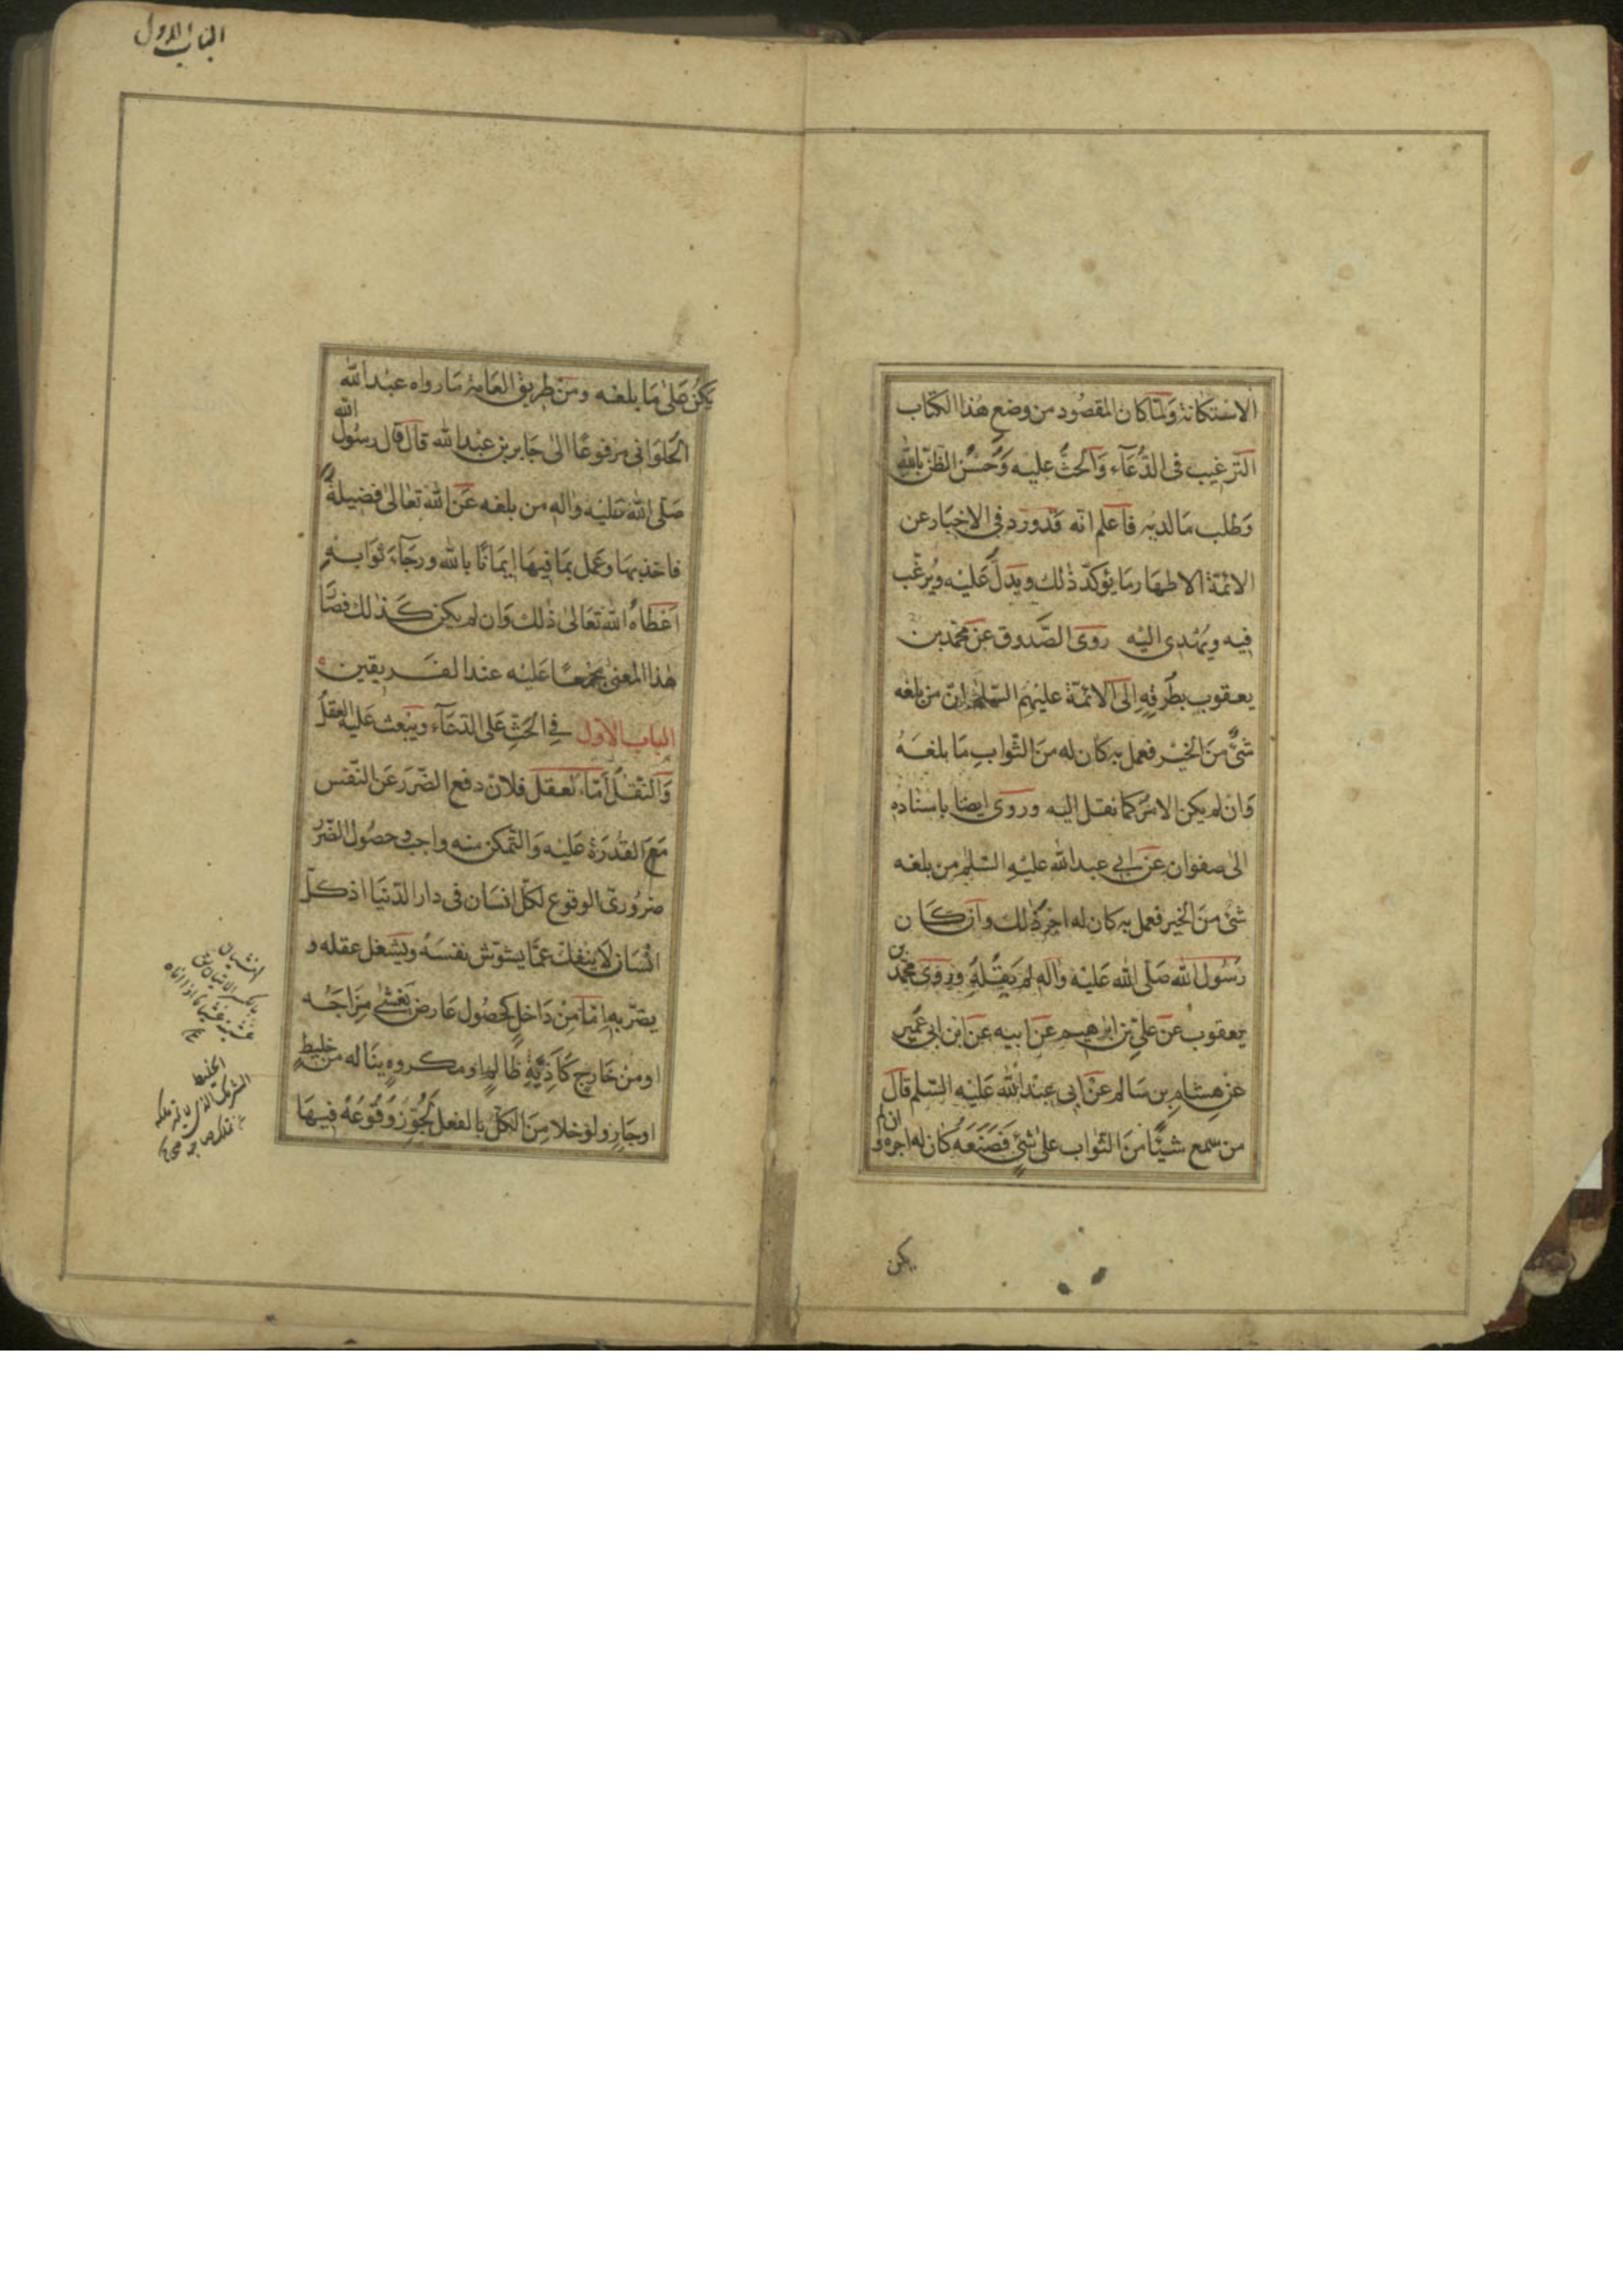 الاستكانة ولما كان المقصود من وضع هذا الكتاب
الترغيب في الدعاء والحث عليه وحسن الظن بالله
وطلب ما لديه فاعلم انه قد ورد في الاخبار عن
الائمة الاطهار ما يؤكد ذلك ويدل عليه ويرغب
فيه ويهدى اليه روى الصدوق عن محمد بن
يعقوب بطرقه الى الائمة عليهم السلم ان من بلغه
شئ من الخير فعمل به كان له من الثواب ما بلغه
وان لم يكن الامر كما نقل اليه وروى ايضا باسناده
الى صفوان عن ابي عبد الله عليه السلم من بلغه
شئ من الخير فعمل به كان له اجر ذلك وان كان
رسول الله صلى الله عليه واله لم يقله وروى محمد بن
يعقوب عن علي بن ابرهيم عن ابيه عن ابن ابي عمير
عن هشام بن سالم عن ابي عبد الله عليه السلم قال
من سمع شيئا من الثواب على شئ فصنعه كان له اجره وان لم
يكن
الباب الاول
يكن على ما بلغه ومن طريق العامة ما رواه عبد الله
الحلواني مرفوعا الى جابر بن عبد الله قال قال رسول الله
صلى الله عليه واله من بلغه عن الله تعالى فضيلة
فاخذ بها وعمل بما فيها ايمانا بالله ورجاء ثوابه
اعطاه الله تعالى ذلك وان لم يكن كذلك فصار
هذا المعنى مجمعا عليه عند الفريقين
الباب الاول في الحث على الدعاء ويبعث عليه العقل
والنقل اما العقل فلان دفع الضرر عن النفس
مع القدرة عليه والتمكن منه واجب وحصول الضرر
ضروري الوقوع لكل انسان في دار الدنيا اذ كل
انسان لا ينفك عما يشوش نفسه ويشغل عقله و
يضر به اما من داخل كحصول عارض يغشى مزاجه
او من خارج كاذية ظالم او مكروه يناله من خليط
او جار ولو خلا من الكل بالفعل لجوز وقوعه فيها
الخليط